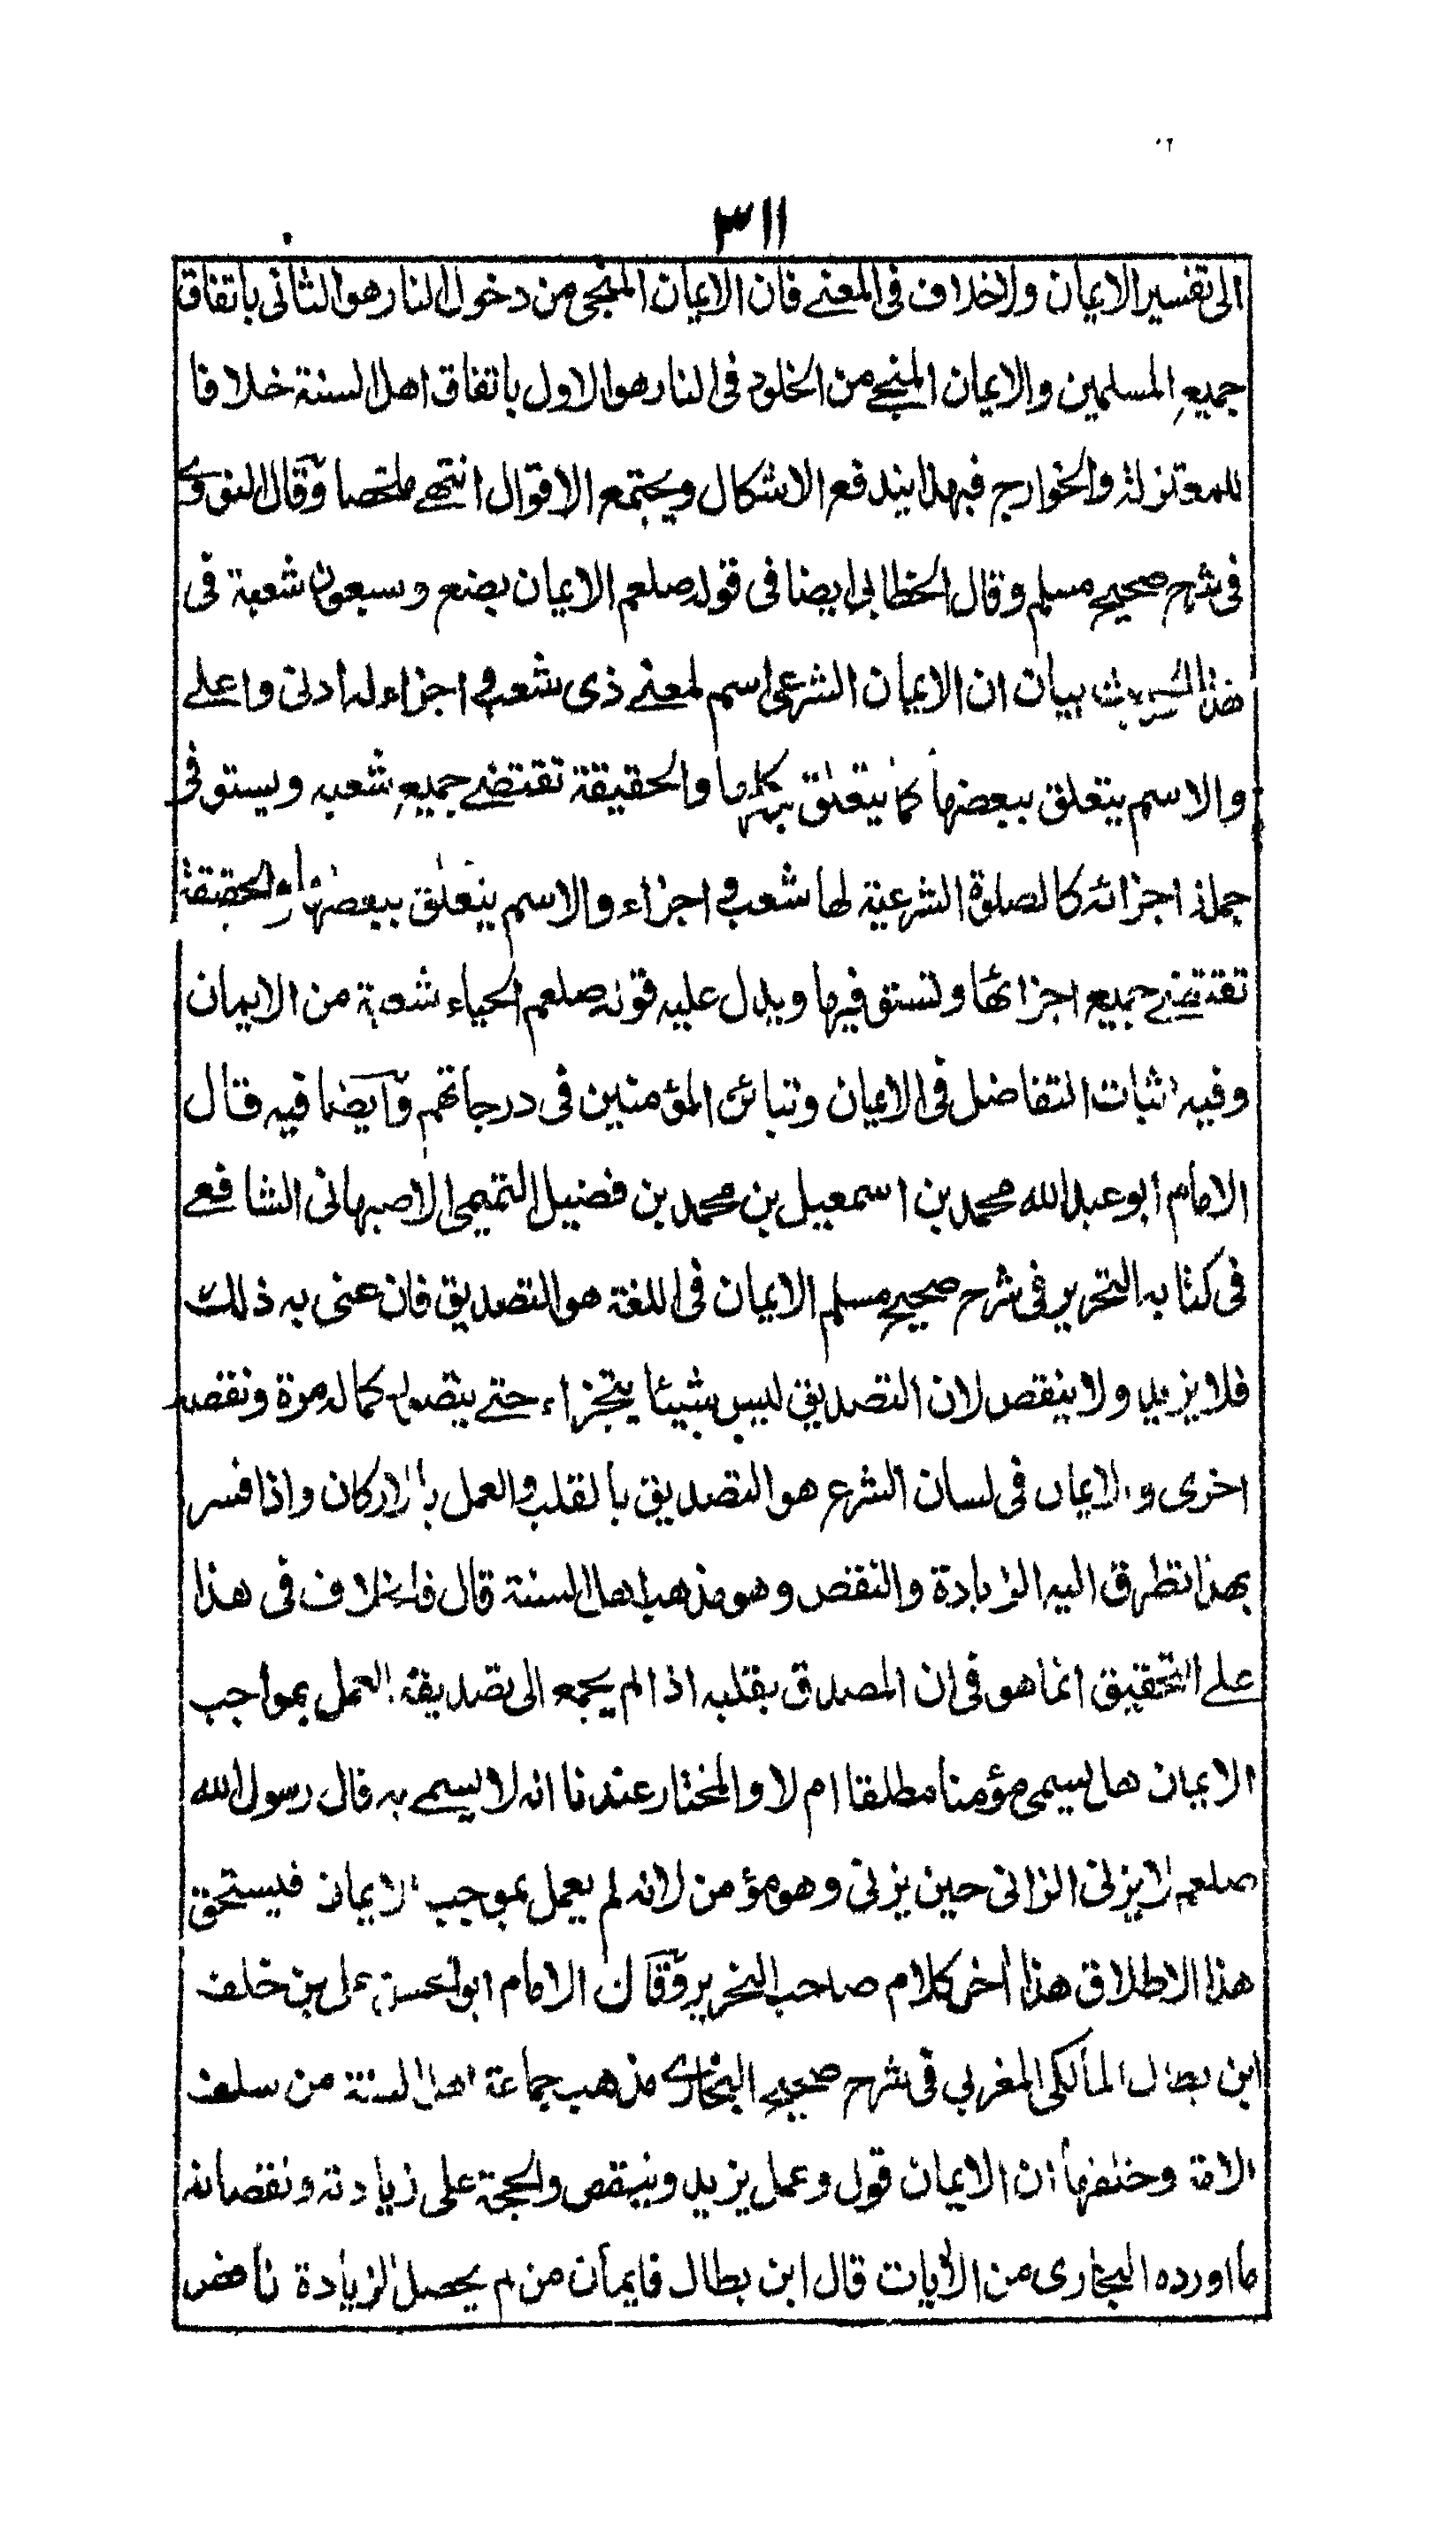 ٣١١
الى تفسير الايمان ولا خلاف فى المعنے فان الايمان المنجى من دخول النار هو الثانى باتفاق
جميع المسلمين والايمان المنجے من الخلود فى النار هو الاول باتفاق اهل السنة خلافا
للمعتزلة والخوارج فبهذا يندفع الاشكال ويجتمع الاقوال انتهے ملخصا وقال النووے
فى شرح صحيح مسلم وقال الخطابى ايضا فى قوله صلعم الايمان بضع وسبعون شعبة فى
هذا الحديث بيان ان الايمان الشرعى اسم لمعنے ذى شعب و اجزاء له ادنى واعلے
والاسم يتعلق ببعضها كما يتعلق بكلها والحقيقة تقتضے جميع شعبه ويستوفى
جملة اجزائه كالصلوة الشرعية لها شعب و اجزاء والاسم يتعلق ببعضها والحقيقة
تقتضے جميع اجزائها وتستوفيها ويدل عليه قوله صلعم الحياء شعبة من الايمان
وفيه اثبات التفاضل فى الايمان وتبائن المؤمنين فى درجاتهم وايضا فيه قال
الامام ابو عبد الله محمد بن اسمعيل بن محمد بن فضيل التميمى الاصبهانى الشافعے
فى كتابه التحرير فى شرح صحيح مسلم الايمان فى اللغة هو التصديق فان عنى به ذلك
فلا يزيد ولا ينقص لان التصديق ليس شيئا يتجزاء حتے يتصور كماله مرة ونقصه
اخرى والايمان فى لسان الشرع هو التصديق بالقلب والعمل بالاركان واذا فسر
بهذا تطرق اليه الزيادة والنقص وهو مذهب اهل السنة قال فالخلاف فى هذا
علے التحقيق انما هو فى ان المصدق بقلبه اذا لم يجمع الى تصديقه العمل بمواجب
الايمان هل يسمى مؤمنا مطلقا ام لا والمختار عندنا انه لا يسمے به قال رسول الله
صلعم لا يزنى الزانى حين يزنى وهو مؤمن لانه لم يعمل بموجب الايمان فيستحق
هذا الاطلاق هذا اخر كلام صاحب التحرير وقال الامام ابو الحسن على بن خلف
ابن بطال المالكى المغربى فى شرح صحيح البخارے مذهب جماعة اهل السنة من سلف
الامة وخلفها ان الايمان قول وعمل يزيد وينقص والحجة على زيادته ونقصانه
ما اورده البخارى من الايات قال ابن بطال فايمان من لم يحصل الزيادة ناقص